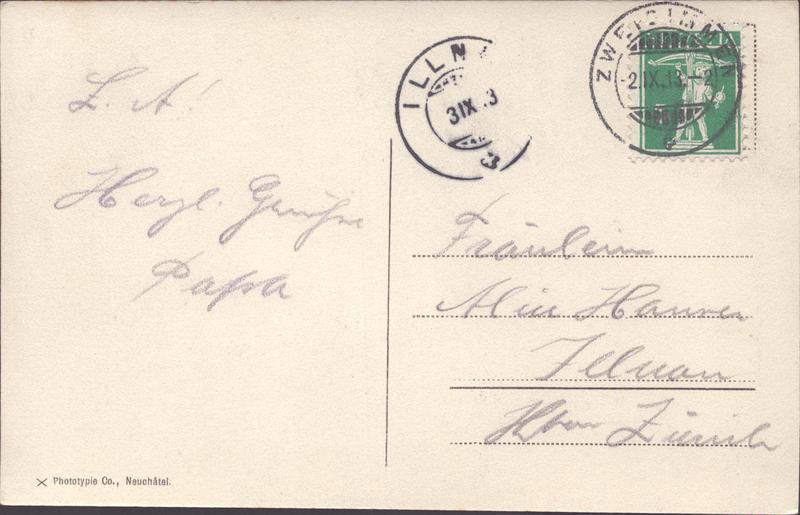 L. A!
Herzl. Grüsse
Papa
ILLN
3 IX 13
ZWEISIMMEN
-2.IX.13.-2
Fräulein
Illnau
Kton Zürich
Phototypie Co., Neuchâtel.